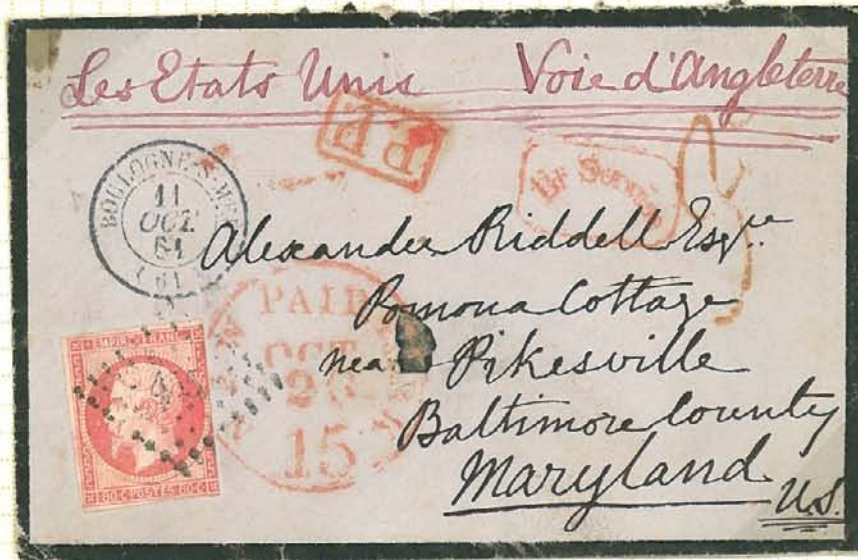 Les Etats Unis Voie d'Angleterre
P.P.
Br Service
BOULOGNE-S-MER
11
OCT.
61
(61)
Alexander Riddell Esqre
Pomona Cottage
near Pikesville
Baltimore County
Maryland
U.S.
PAID
OCT
26
15
EMPIRE FRANC
80·C·POSTES·80·C